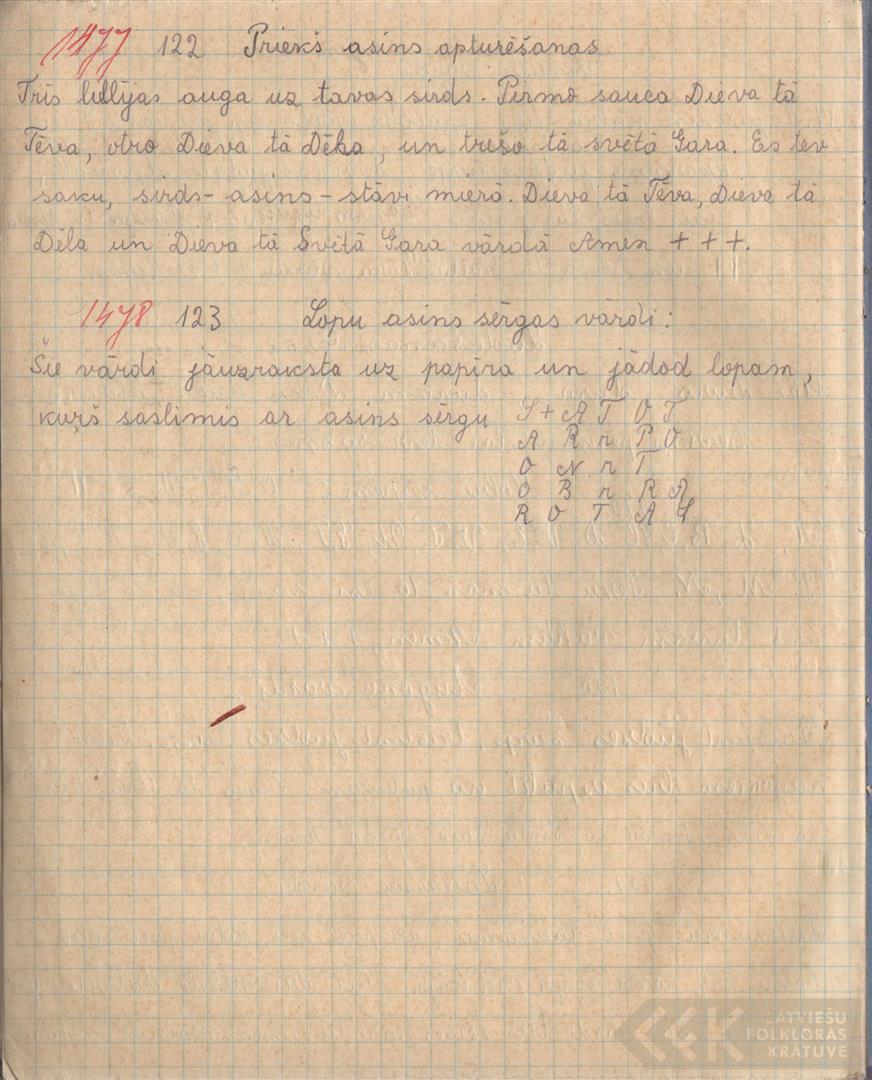 1477 122 Priekš asins apturēšanas
Trīs lillijas auga uz tavas sirds. Pirmo sauca Dieva tā
Tēva, otro Dieva tā Dēla, un trešo tā svētā Gara. Es tev
saku, sirds-asins-stāvi mierā. Dieva tā Tēva, Dieva tā
Dēla un Dieva tā Svētā Gara vārdā Amen + + +.
1478 123 Lopu asins sērgas vārdi:
Šie vārdi jāuzraksta uz papīra un jādod lopam,
kuŗš saslimis ar asins sērgu S + A T O T
A R n P O
O N n T
O B n R A
R O T A S
LATVIEŠU
FOLKLORAS
KRĀTUVE